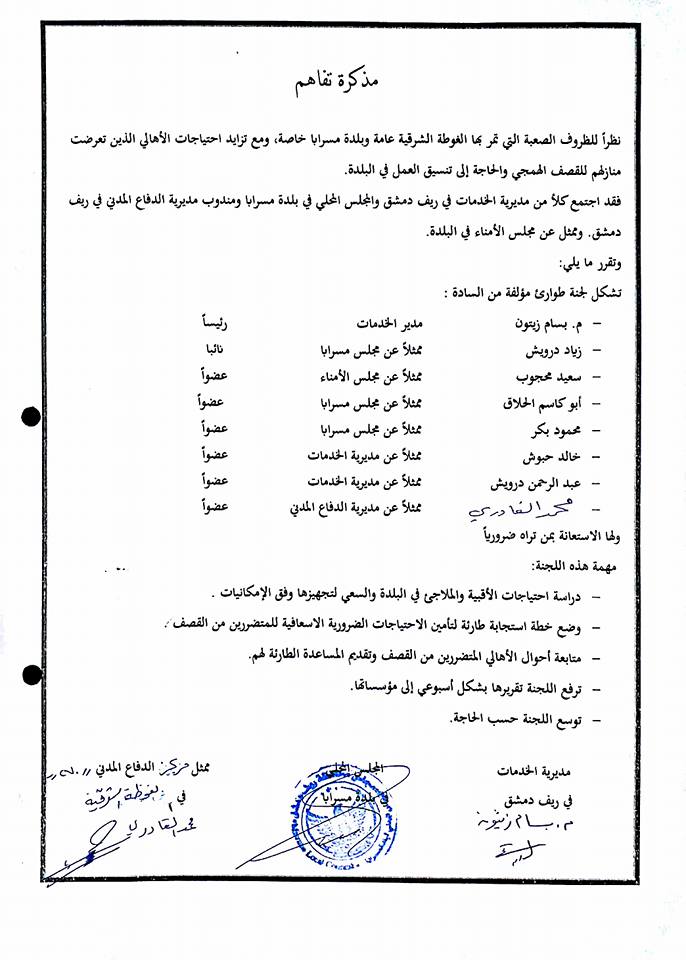 مذكرة تفاهم
نظراً للظروف الصعبة التي تمر بها الغوطة الشرقية عامة وبلدة مسرابا خاصة، ومع تزايد احتياجات الأهالي الذين تعرضت
منازلهم للقصف الهمجي والحاجة إلى تنسيق العمل في البلدة.
فقد اجتمع كلاً من مديرية الخدمات في ريف دمشق والمجلس المحلي في بلدة مسرابا ومندوب مديرية الدفاع المدني في ريف
دمشق. وممثل عن مجلس الأمناء في البلدة.
وتقرر ما يلي:
تشكل لجنة طوارئ مؤلفة من السادة :
– م. بسام زيتون مدير الخدمات رئيساً
– زياد درويش ممثلاً عن مجلس مسرابا نائبا
– سعيد محجوب ممثلاً عن مجلس الأمناء عضواً
– أبو كاسم الحلاق ممثلاً عن مجلس مسرابا عضواً
– محمود بكر ممثلاً عن مجلس مسرابا عضواً
– خالد حبوش ممثلاً عن مديرية الخدمات عضواً
– عبد الرحمن درويش ممثلاً عن مديرية الخدمات عضواً
– محمد القادري ممثلاً عن مديرية الدفاع المدني عضواً
ولها الاستعانة بمن تراه ضرورياً
مهمة هذه اللجنة:
– دراسة احتياجات الأقبية والملاجئ في البلدة والسعي لتجهيزها وفق الإمكانيات .
– وضع خطة استجابة طارئة لتأمين الاحتياجات الضرورية الاسعافية للمتضررين من القصف .
– متابعة أحوال الأهالي المتضررين من القصف وتقديم المساعدة الطارئة لهم.
– ترفع اللجنة تقريرها بشكل أسبوعي إلى مؤسساتها.
– توسع اللجنة حسب الحاجة.
مديرية الخدمات المجلس المحلي ممثل مركز الدفاع المدني
في ريف دمشق في بلدة مسرابا في الغوطة الشرقية
م. بسام زيتون محمد القادري